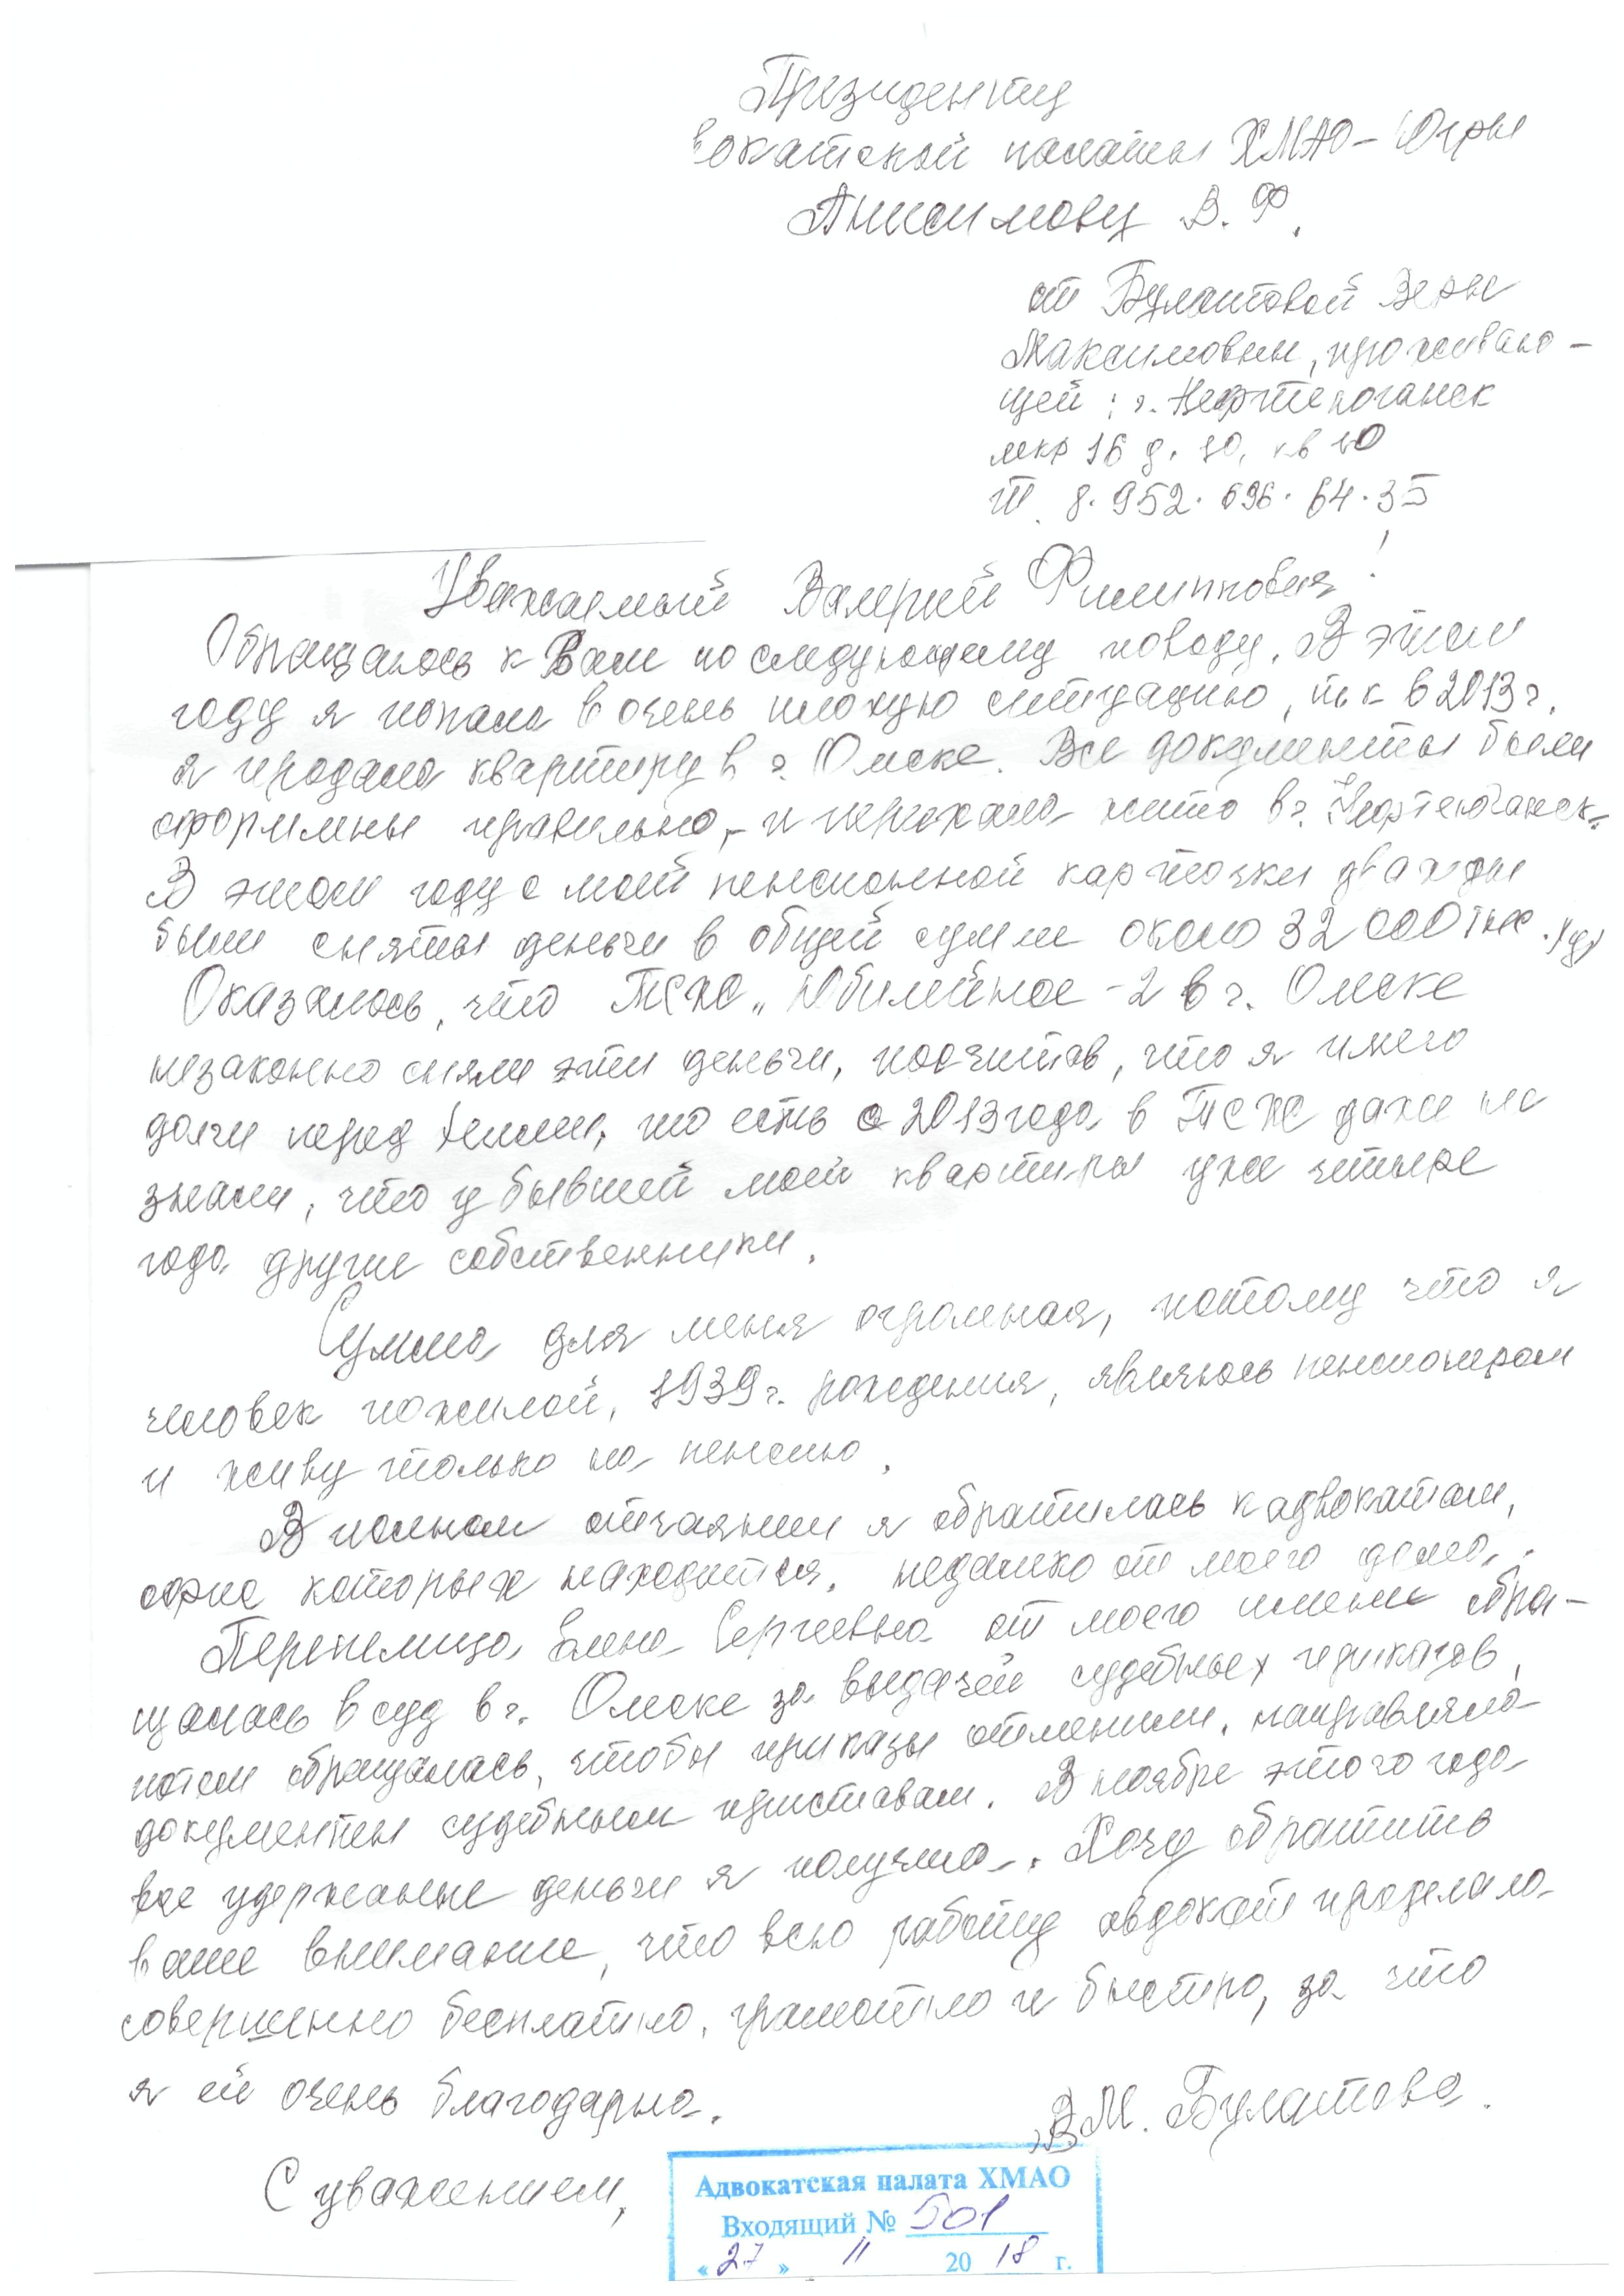 Президенту
вокатской палаты ХМАО-Югры
Анисимову В. Ф.
от Булатовой Веры
Максимовны, проживаю-
щей: г. Нефтеюганск
мкр 16 д. 10, кв 10
т. 8.952.696.64.35
Уважаемый Валерий Филиппович!
Обращаюсь к Вам по следующему поводу. В этом
году я попала в очень плохую ситуацию, т.к в 2013 г.
я продала квартиру в г. Омске. Все документы были
оформлены правильно, и переехала жить в г. Нефтеюганск.
В этом году с моей пенсионной карточки дважды
были сняты деньги в общей сумме около 32 000 тыс. руб
Оказалось, что ТСЖ „Юбилейное-2 в г. Омске
незаконно сняли эти деньги, посчитав, что я имею
долги перед ними, то есть с 2013 года в ТСЖ даже не
знали, что у бывшей моей квартиры уже четыре
года другие собственники.
Сумма для меня огромная, потому что я
человек пожилой, 1939 г. рождения, являюсь пенсионером
и живу только на пенсию.
В полном отчаянии я обратилась к адвокатам,
офис которых находится, недалеко от моего дома.
Перепелица Елена Сергеевна от моего имени обра-
щалась в суд в г. Омске за выдачей судебных приказов,
потом обращалась, чтобы приказы отменили, направляла
документы судебным приставам. В ноябре этого года
все удержаные деньги я получила. Хочу обратить
ваше внимание, что всю работу авдокат проделала
совершенно бесплатно, грамотно и быстро, за что
я ей очень благодарна.
В.М. Булатова.
С уважением,
Адвокатская палата ХМАО
Входящий № 501
« 27 » 11 20 18 г.